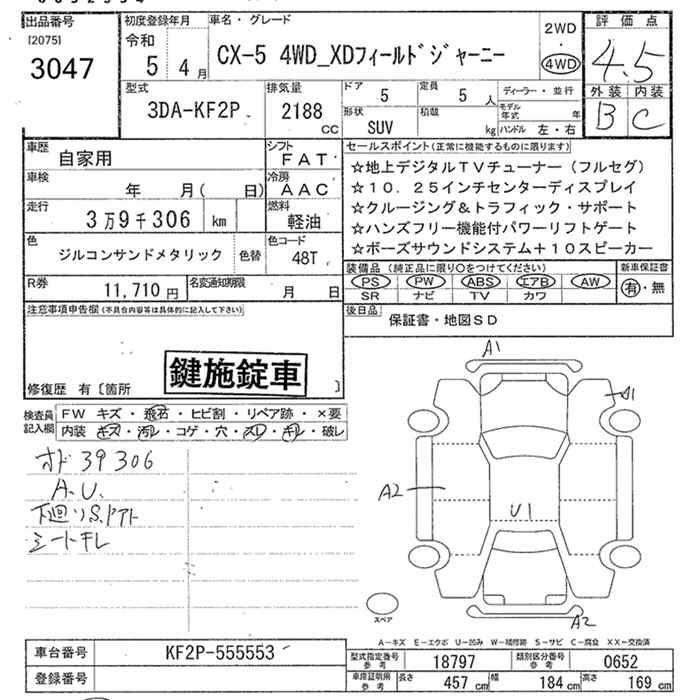 出品番号
[2075]
3047
初度登録年月
令和
5 4月
車名・グレード
CX-5 4WD_XDフィールドジャーニー
2WD
・
4WD
評価点
4.5
外装 内装
B C
型式
3DA-KF2P
排気量
2188
cc
ドア 5
定員 5 人
形状 SUV
積載 kg
ディーラー・並行
モデル年式 年
ハンドル 左・右
車歴 自家用
シフト FAT
車検 年 月( 日)
冷房 AAC
走行 3万9千306 km
燃料 軽油
色 ジルコンサンドメタリック
色替
色コード 48T
R券 11,710円
名変通知期限 月 日
セールスポイント(正常に機能するものに限ります)
☆地上デジタルTVチューナー(フルセグ)
☆10.25インチセンターディスプレイ
☆クルージング&トラフィック・サポート
☆ハンズフリー機能付パワーリフトゲート
☆ボーズサウンドシステム+10スピーカー
装備品(純正品に限り○をつけてください)
PS PW ABS エアB AW
SR ナビ TV カワ
新車保証書
有・無
後日品 保証書・地図SD
注意事項申告欄(不具合内容等は具体的に記入して下さい)
鍵施錠車
修復歴 有〔箇所 〕
検査員記入欄
FW キズ・飛石・ヒビ割・リペア跡・×要
内装 キズ・汚レ・コゲ・穴・スレ・キレ・破レ
オド 39306
A.U.
下廻りS.アト
シートキレ
A1
A1
A2
U1
A2
スペア
A-キズ E-エクボ U-凹み W-補修跡 S-サビ C-腐食 XX-交換済
車台番号 KF2P-555553
登録番号
型式指定番号 参考 18797
類別区分番号 参考 0652
車庫証明用 参考 長さ 457cm 幅 184cm 高さ 169cm